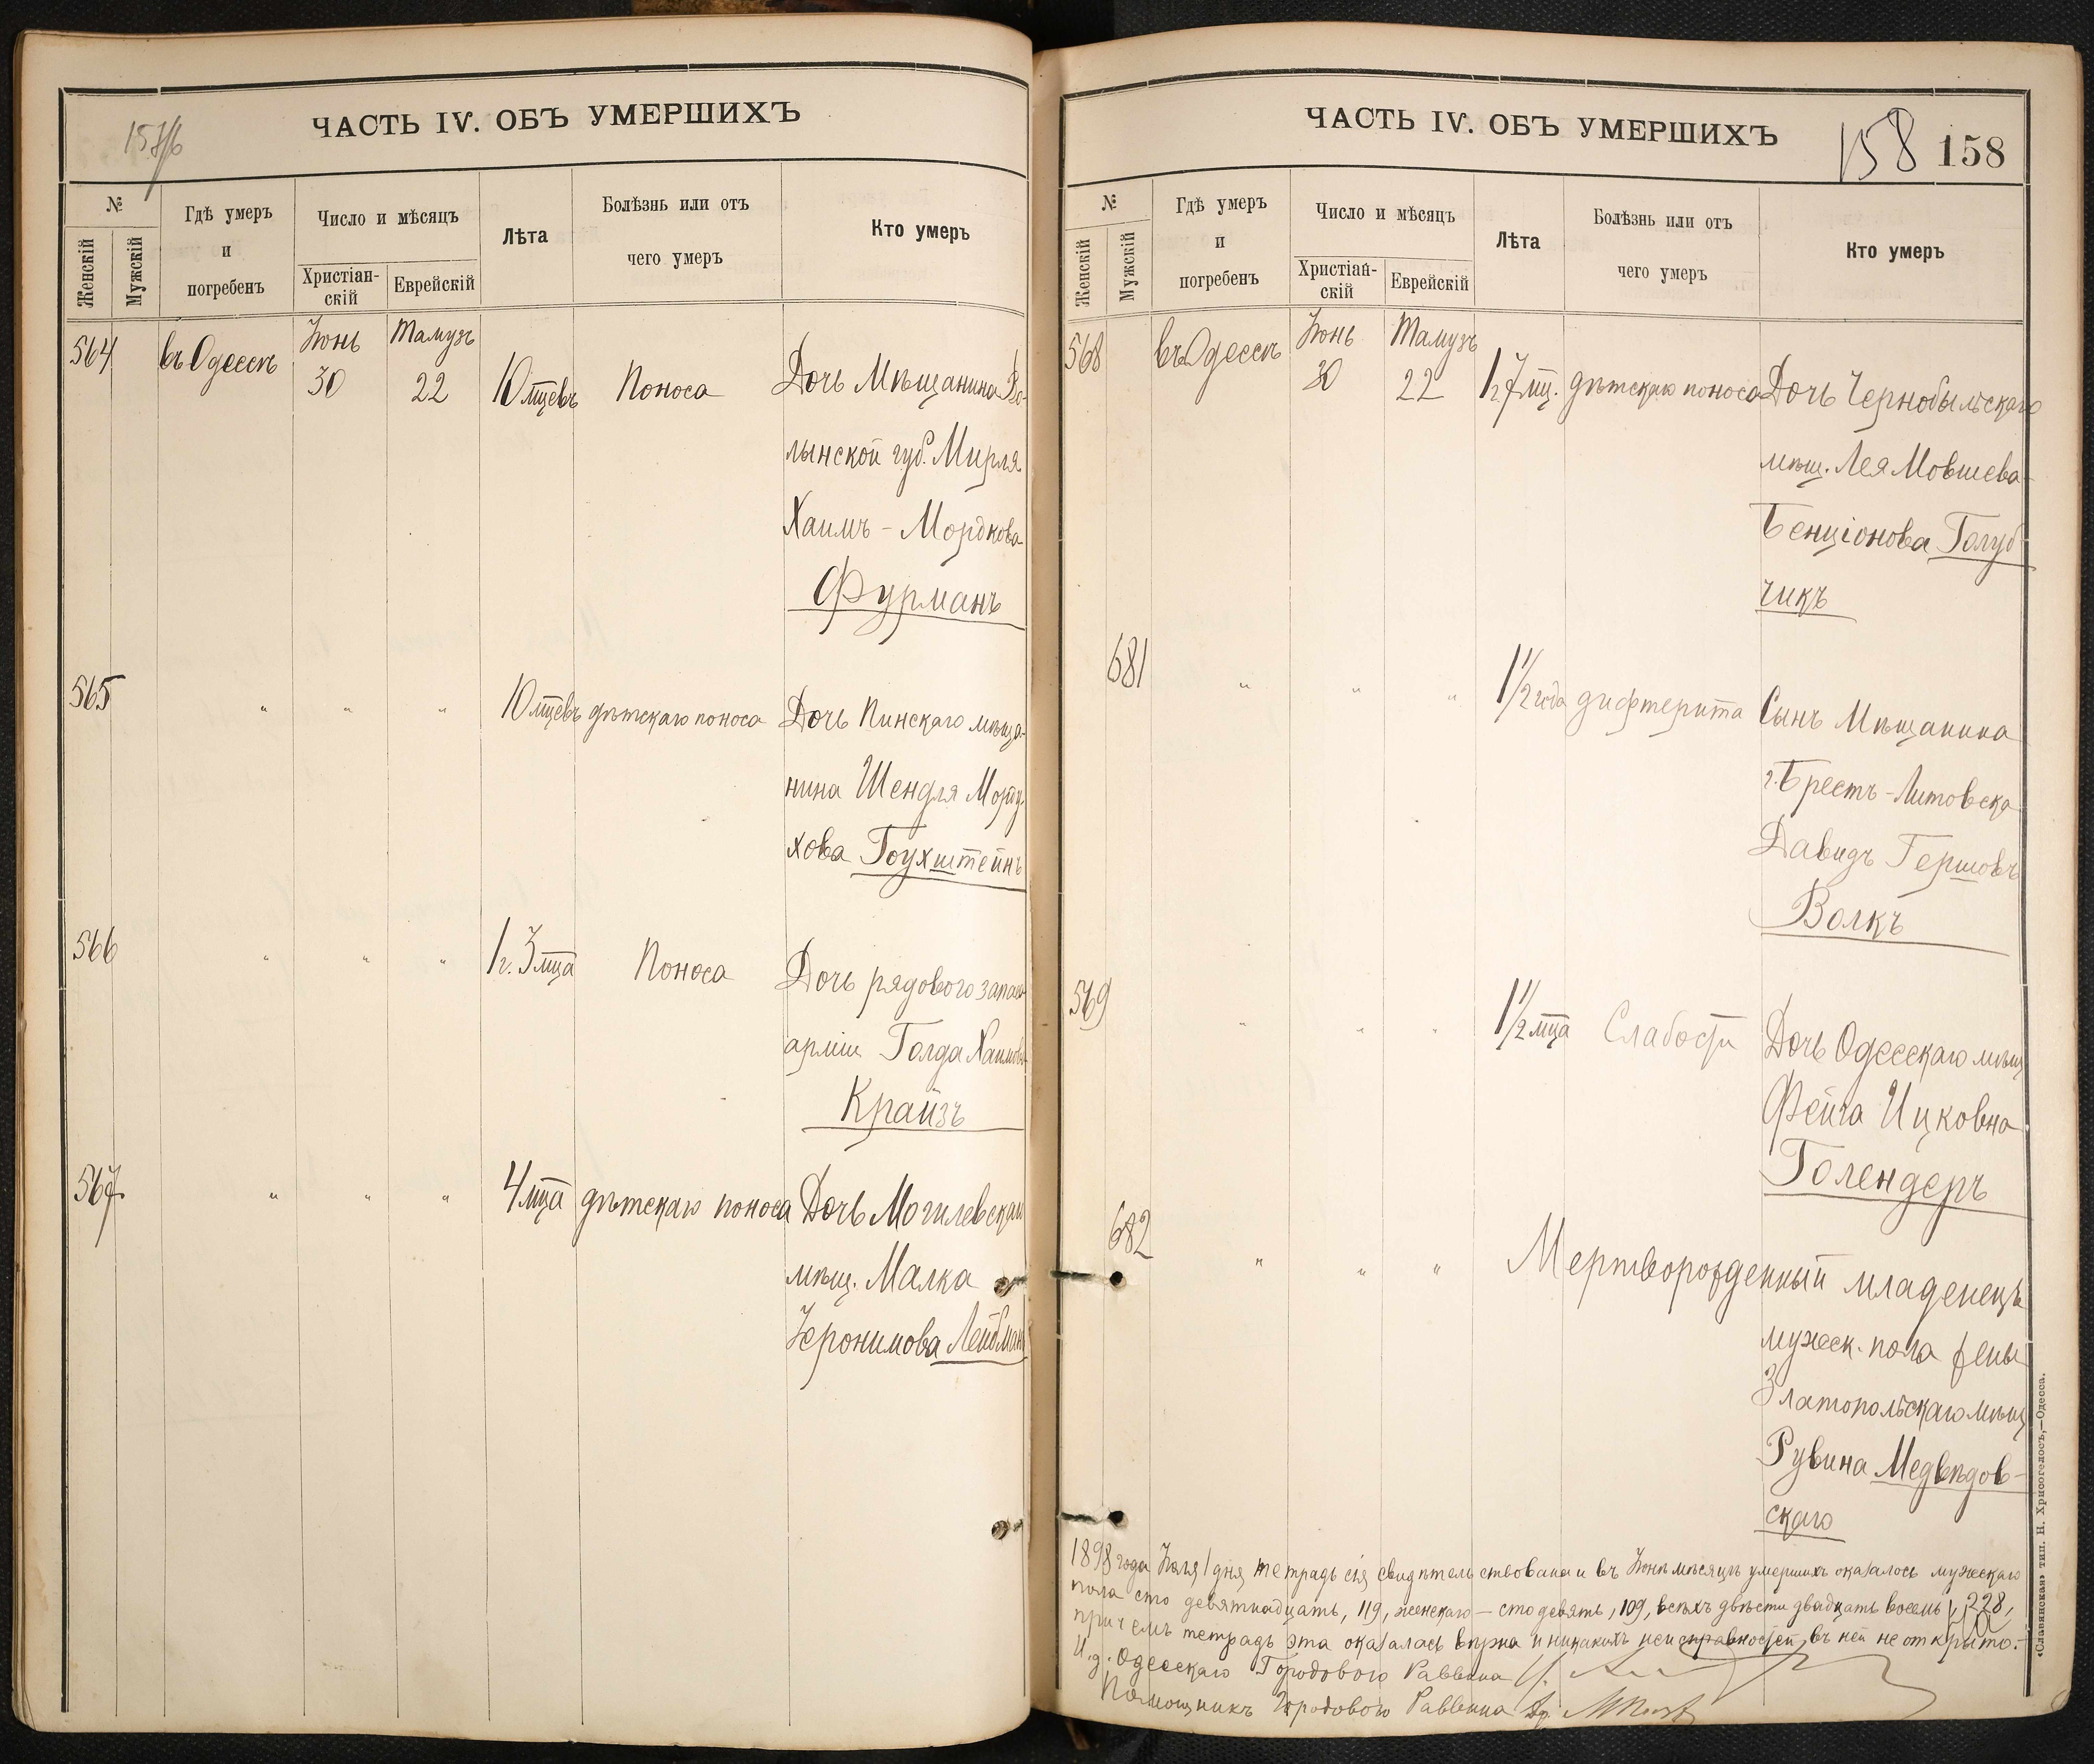 ЧАСТЬ IV. ОБЪ УМЕРШИХЪ
№
Женскій
Мужскій
Гдѣ умеръ
и
погребенъ
Число и мѣсяцъ
Христіан-
скій
Еврейскій
Лѣта
Болѣзнь или отъ
чего умеръ
Кто умеръ
564 въ Одессѣ Іюнь 30 Тамузъ 22 10 мцевъ Поноса Дочь Мѣщанина Во-
лынской губ. Мирля
Хаимъ - Мордкова
Фурманъ
565 " " " 10 мцевъ дѣтскаго поноса Дочь Пинскаго мѣща-
нина Шендля Морду
хова Гоухштейнъ
566 " " " 1 г. 3 мца Поноса Дочь рядового запаса
арміи Голда Хаимова
Крайзъ
567 " " " 4 мца дѣтскаго поноса Дочь Могилевскаго
мѣщ. Малка
Іеронимова Лейбманъ
ЧАСТЬ IV. ОБЪ УМЕРШИХЪ
158 158
№
Женскій
Мужскій
Гдѣ умеръ
и
погребенъ
Число и мѣсяцъ
Христіан-
скій
Еврейскій
Лѣта
Болѣзнь или отъ
чего умеръ
Кто умеръ
568 въ Одессѣ Іюнь 30 Тамузъ 22 1 г. 7 мц. дѣтскаго поноса Дочь Чернобыльскаго
мѣщ. Лея Мовшева-
Бенціонова Голуб-
чикъ
681 " " " 1 1/2 года дифтерита Сынъ Мѣщанина
г. Брестъ-Литовска
Давидъ Гершовъ
Волкъ
569 " " " 1 1/2 мца Слабости Дочь Одесскаго мѣщ
Фейга Ицковна
Голендеръ
682 " " " Мертворожденный младенецъ
мужеск. пола жены
Златопольскаго мѣщ
Рувина Медвѣдов-
скаго
1898 года Іюля 1 дня тетрадь сія свидѣтельствована и въ Іюнѣ мѣсяцѣ умершихъ оказалось мужескаго
пола сто девятнадцать, 119, женскаго — сто девять, 109, всѣхъ двѣсти двадцать восемь, 228,
причемъ тетрадь эта оказалась вѣрна и никакихъ неисправностей въ ней не открыто.-
И.д. Одесскаго Городового Раввина
Помощникъ Городового Раввина
«Славянская» тип. Н. Хрисогелосъ,—Одесса.